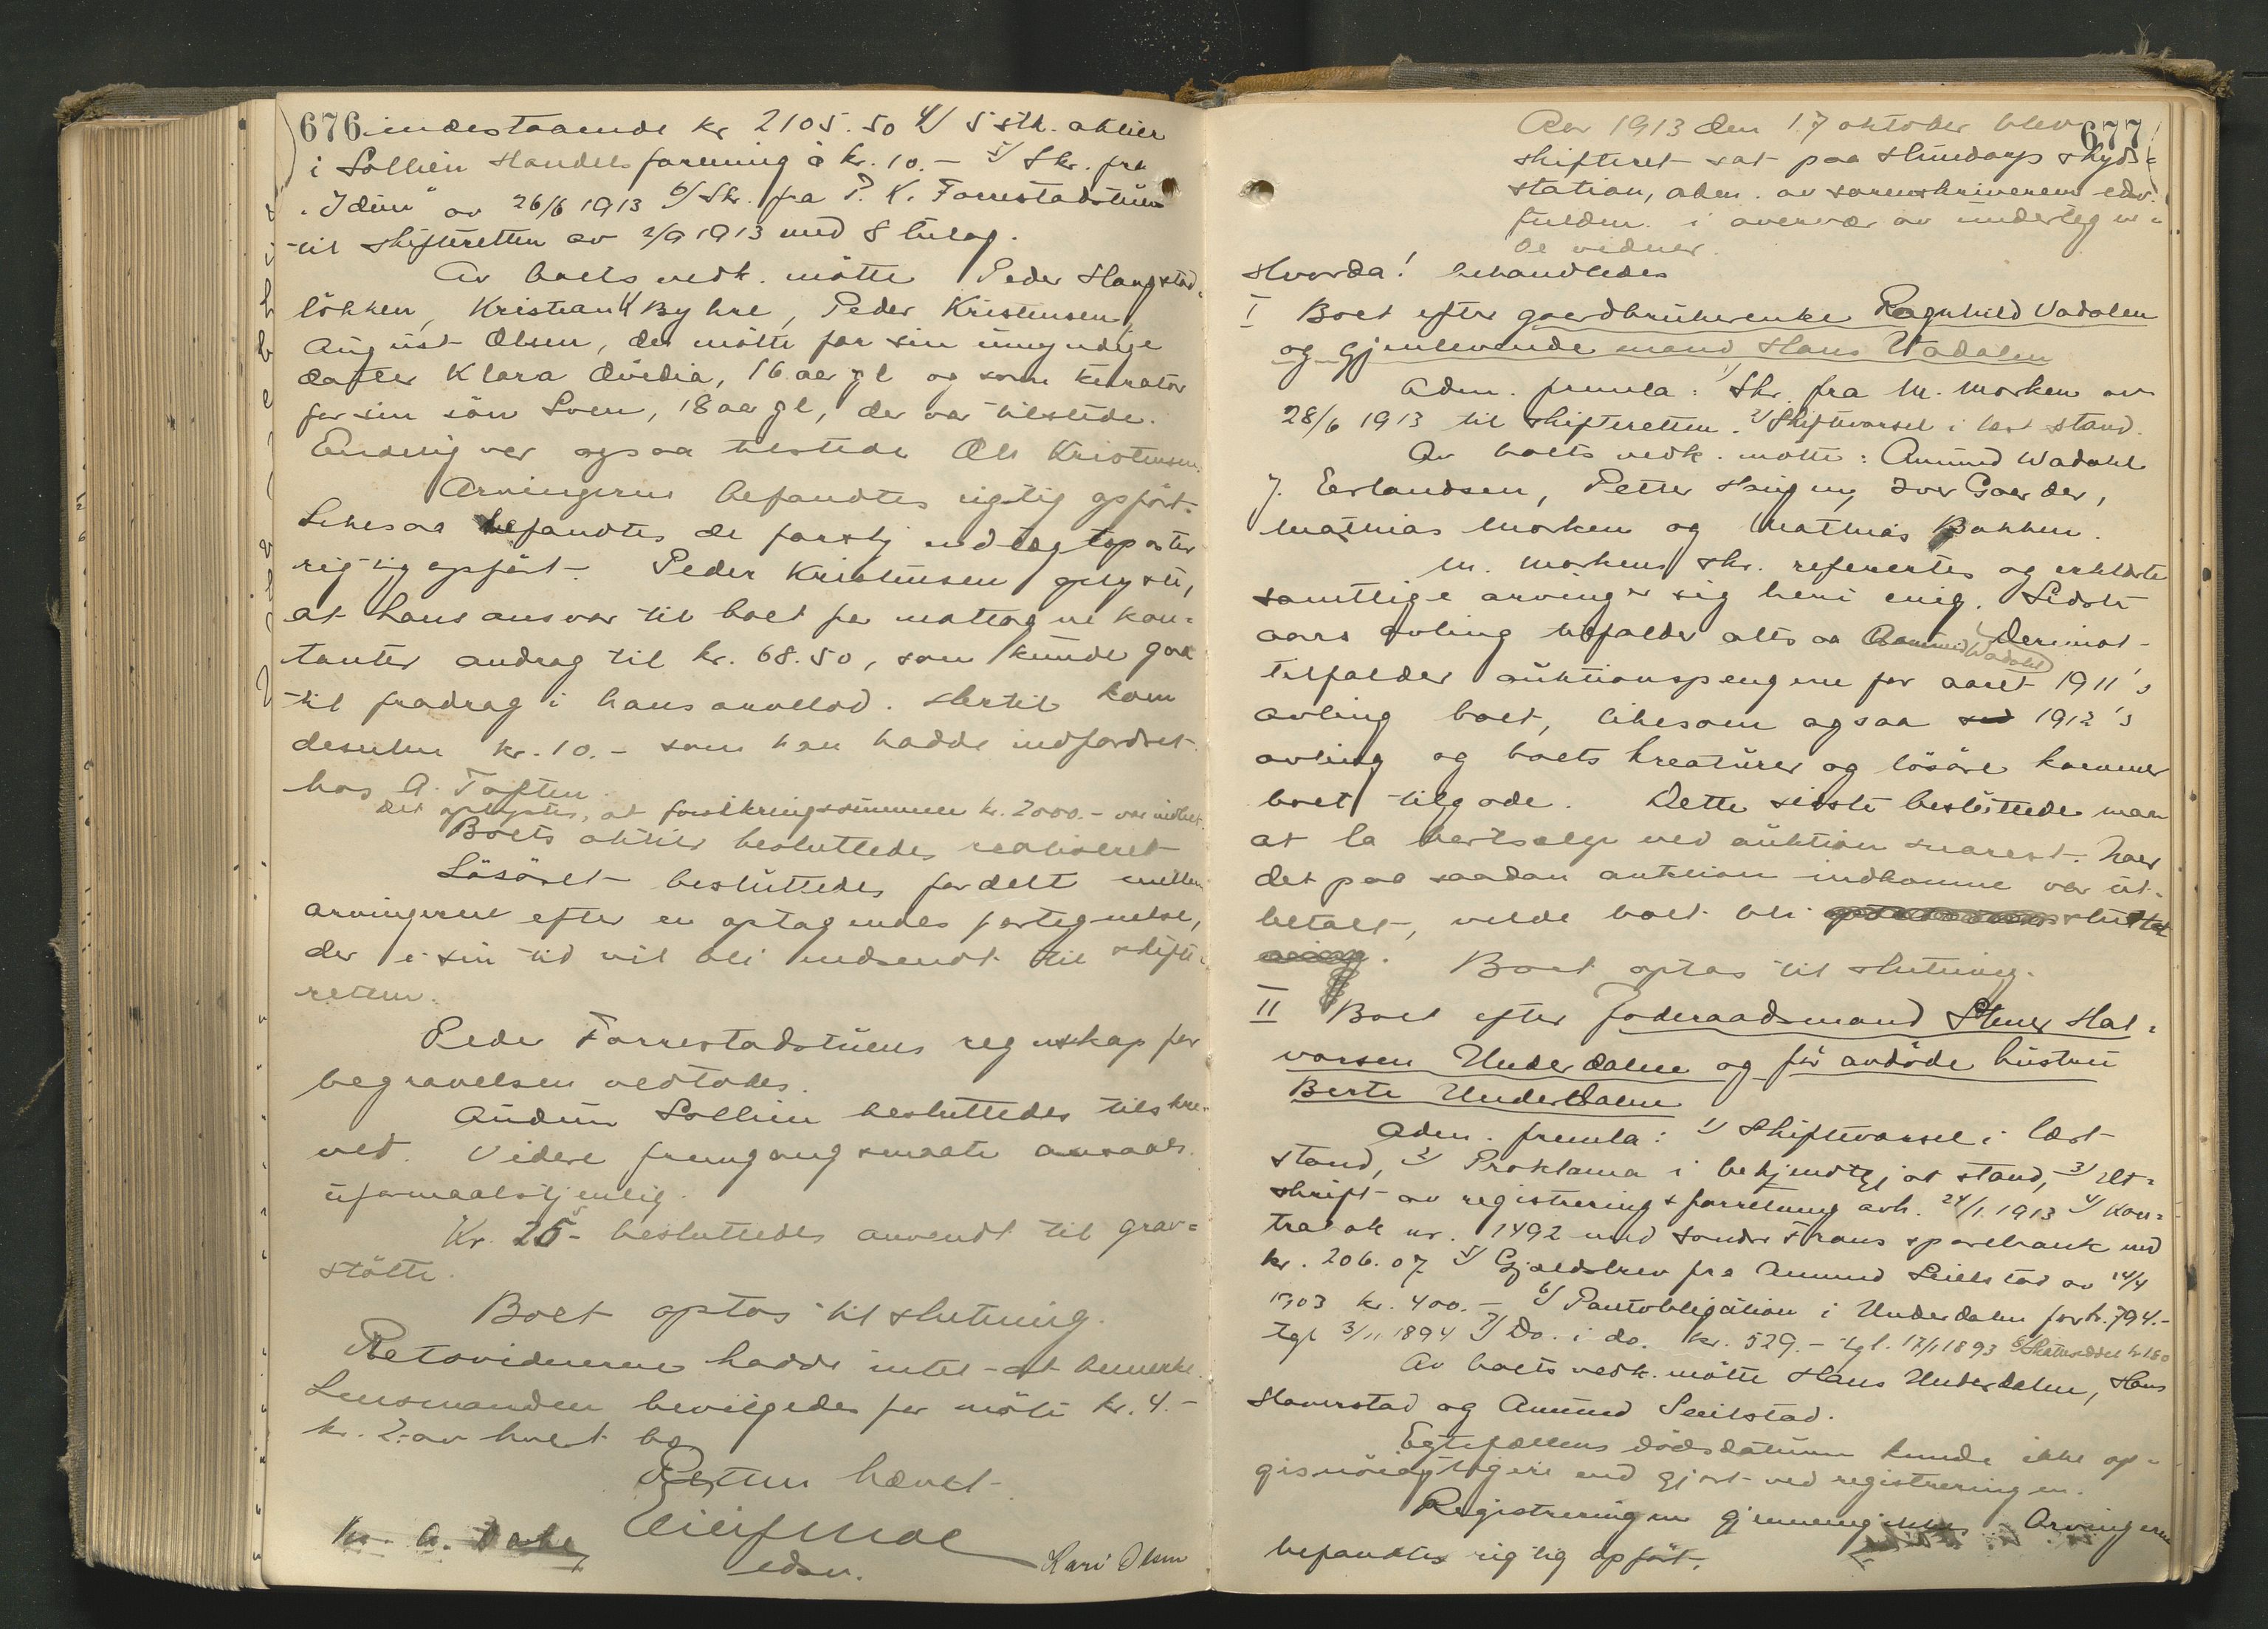 676
indestaaende kr 2105.50 4/ 5 stk. aktier
i Sollien Handelsforening à kr. 10.- 5/ Skr. fra
"Idun" av 26/6 1913 6/ Skr. fra P. K. Forrestadstuen
til skifteretten av 2/9 1913 med 8 bilag.
Av boets vedk. mötte Peder Haugstad-
lökken, Kristian Byhre, Peder Kristensen,
August Olsen, der mötte for sin umyndige
datter Klara Ovidia, 16 aar gl og som kurator
for sin sön Sven, 18 aar gl, der var tilstede.
Endelig var ogsaa tilstede Ole Kristensen.
Arvingerne befandtes rigtig opfört.
Likesaa befandtes de forskj indtægtsposter
rigtig opfört. Peder Kristensen oplyste,
at hans ansvar til boet for mottagne kon=
tanter androg til kr. 68.50, som kunde gaa
til fradrag i hans arvelod. Hertil kom
desuten kr. 10.- som han hadde indfordret
hos A. Toften.
Det oplystes, at forsikringssummen kr. 2000.- var indbet.
Boets aktier besluttedes realiseret
Lösöret besluttedes fordelt mellem
arvingerne efter en optagendes fortegnelse,
der i sin tid vil bli indsendt til skifte-
retten.
Peder Forrestadstuens regnskap for
begravelsen vedtodes.
Audun Sollien besluttedes tilskre-
vet. Videre fremgangsmaate ansaaes
uformaalstjenlig.
Kr. 25- besluttedes anvendt til grav=
stötte.
Boet optas til slutning.
Retsvidnerne hadde intet at bemerke.
Lensmanden bevilgedes for möte kr. 4.-
kr. 2.- av hvert bo
Retten hævet.
Kr. A. Dahl
edsv.
Kari Olsen
677
Aar 1913 den 17 oktober blev
skifteret sat paa Hundorp skyds=
station, adm. av sorenskriverens edsv.
fuldm. i overvær av undertegne=
de vidner.
Hvorda! behandledes
I Boet efter gaardbrukerenke Ragnhild Vadalen
og gjenlevende mand Hans Wadalen
Adm. fremla: 1/ Skr. fra M. Morken av
28/6 1913 til skifteretten. 2/ Skiftevarsel i læst stand.
Av boets vedk. mötte: Amund Wadahl
J. Erlandsen, Petter Haugen, Iver Gaarder,
Mathias Morken og Mathias Bakken.
M. Morkens skr. refereertes og erklærte
samtlige arvinger sig heri enig. Sidste
aars avling tilfalder altsaa Amund Wadahl. Derimot
tilfalder auktionspengene for aaret 1911's
avling boet, likesom ogsaa 1912's
avling og boets kreaturer og lösöre kommer
boet tilgode. Dette sidste besluttede man
at la bortsælge ved auktion snarest. Naar
det paa saadan auktion indkomne var ut-
betalt, vilde boet bli sluttet
Boet optas til slutning.
II Boet efter foderaadsmand Stener Hal=
vorsen Underdalen og för avdöde hustru
Berte Underdalen
Adm. fremla: 1/ Skiftevarsel i læst
stand, 2/ Proklama i bekjendtgj at stand, 3/ Ut=
skrift av registreringsforretning avh. 24/1 1913 4/ Kon=
trabok nr. 1492 med Söndre Frons sparebank med
kr. 206.07 5/ Gjældsbrev fra Amund Seielstad av 14/4
1903 kr. 400.- 6/ Pantobligation i Underdalen for kr. 794.-
tgl 3/11 1894 7/ Do. i do. kr. 529.- tgl. 17/1 1893 8/ Skatteseddel kr 1.80
Av boets vedk. mötte Hans Underdalen, Hans
Haverstad og Amund Seielstad.
Egtefællens dödsdatum kunde ikke op-
gis nöiagtigere end gjort ved registreringen.
Registreringen gjennemgikkes. Arvingerne
befandtes rigtig opfört.